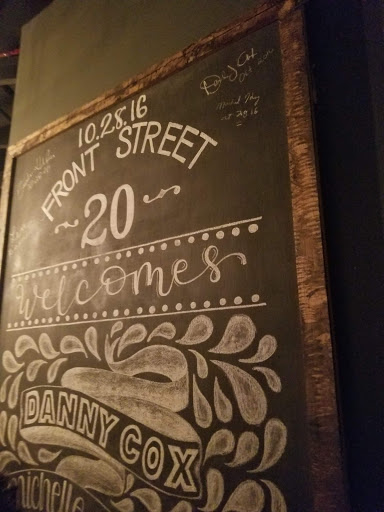 10.28.16
FRONT STREET
20
welcomes
DANNY COX
michelle